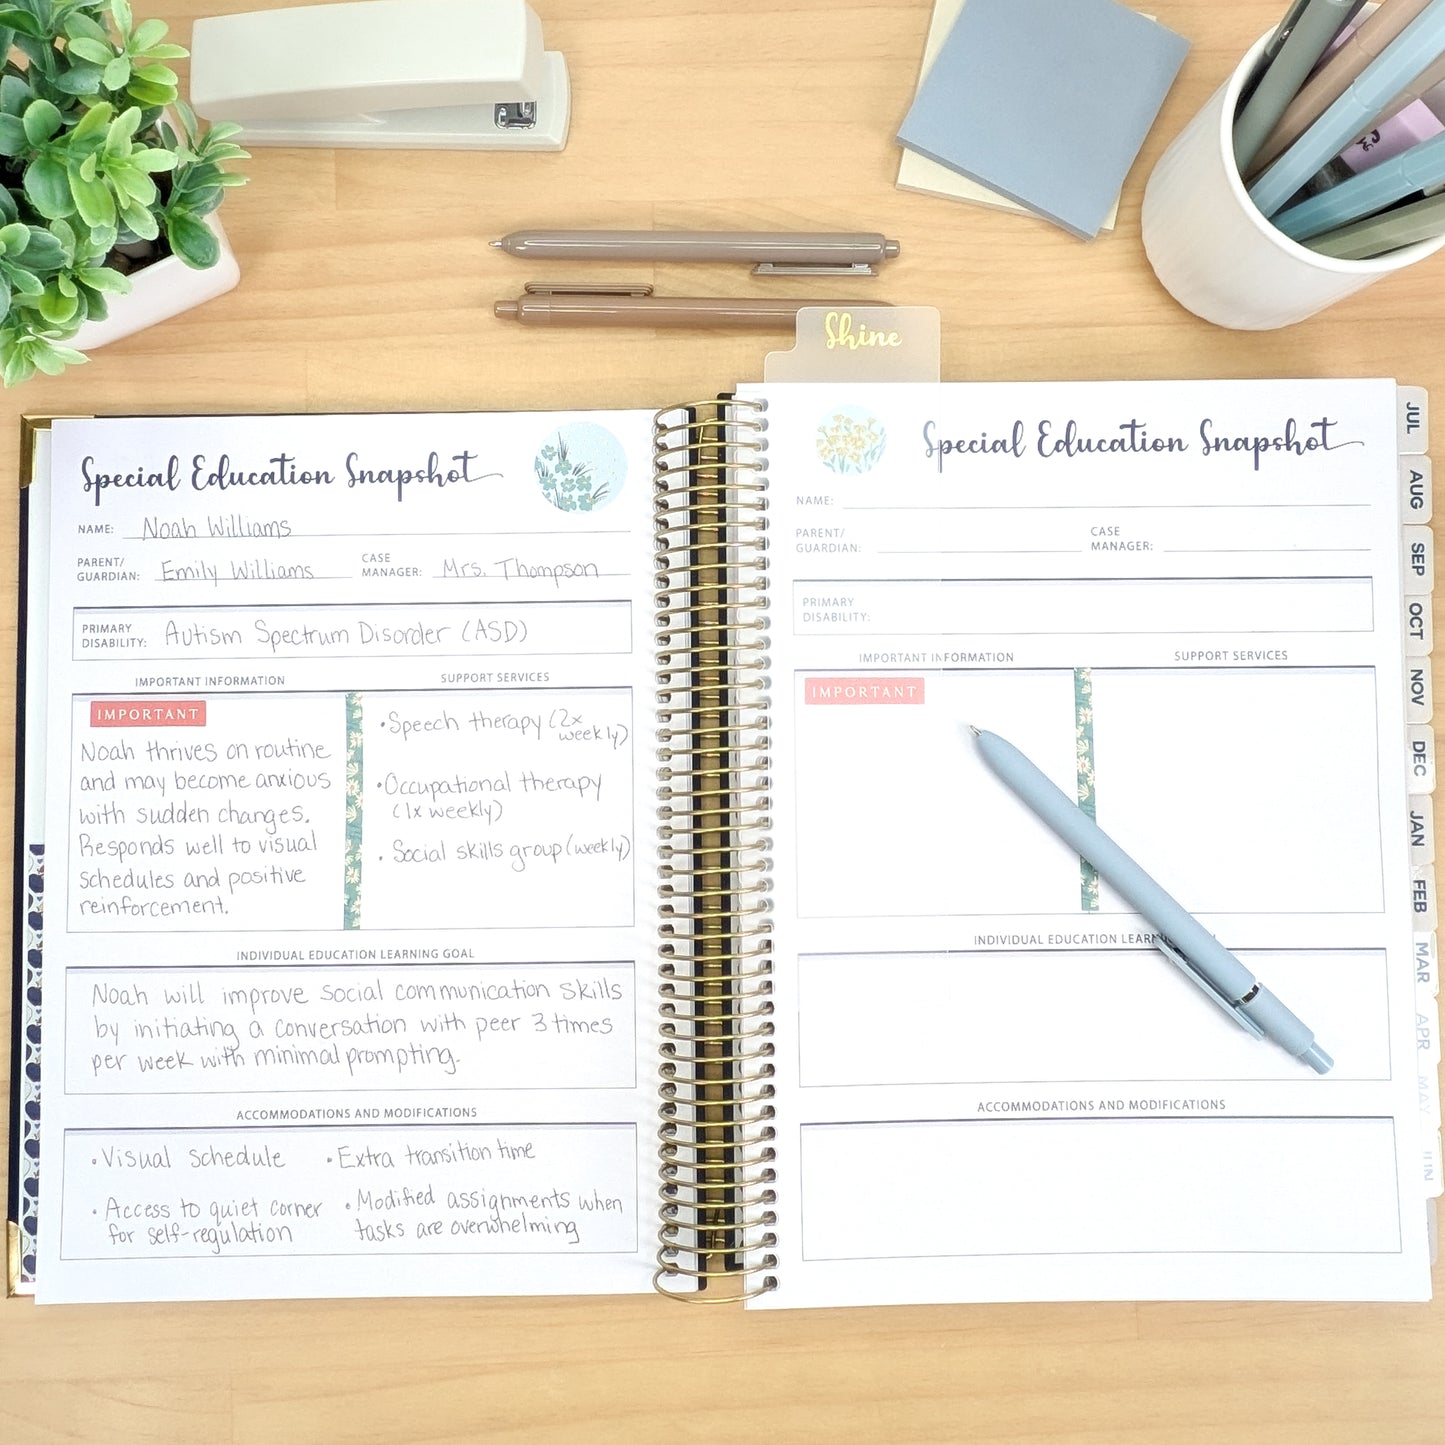 Shine
Special Education Snapshot
NAME: Noah Williams
PARENT/
GUARDIAN: Emily Williams
CASE
MANAGER: Mrs. Thompson
PRIMARY
DISABILITY: Autism Spectrum Disorder (ASD)
IMPORTANT INFORMATION
IMPORTANT
Noah thrives on routine
and may become anxious
with sudden changes.
Responds well to visual
schedules and positive
reinforcement.
SUPPORT SERVICES
•Speech therapy (2x
weekly)
•Occupational therapy
(1x weekly)
• Social skills group (weekly)
INDIVIDUAL EDUCATION LEARNING GOAL
Noah will improve social communication skills
by initiating a conversation with peer 3 times
per week with minimal prompting.
ACCOMMODATIONS AND MODIFICATIONS
• Visual Schedule
• Extra transition time
• Access to quiet corner
for self-regulation
• Modified assignments when
tasks are overwhelming
Special Education Snapshot
NAME:
PARENT/
GUARDIAN:
CASE
MANAGER:
PRIMARY
DISABILITY:
IMPORTANT INFORMATION
IMPORTANT
SUPPORT SERVICES
INDIVIDUAL EDUCATION
ACCOMMODATIONS AND MODIFICATIONS
JUL
AUG
SEP
OCT
NOV
DEC
JAN
FEB
MAR
APR
MAY
JUN